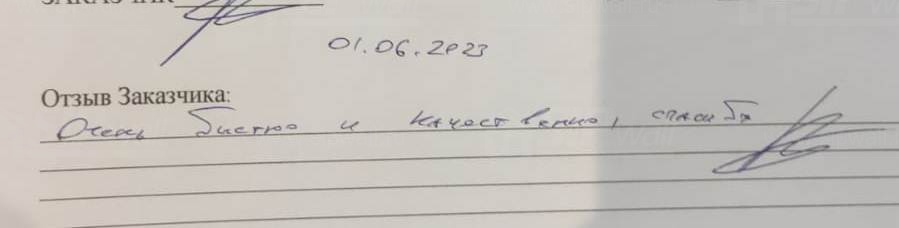 ЗАКАЗЧИК
01.06.2023
Отзыв Заказчика:
Очень быстро и качественно, спасибо